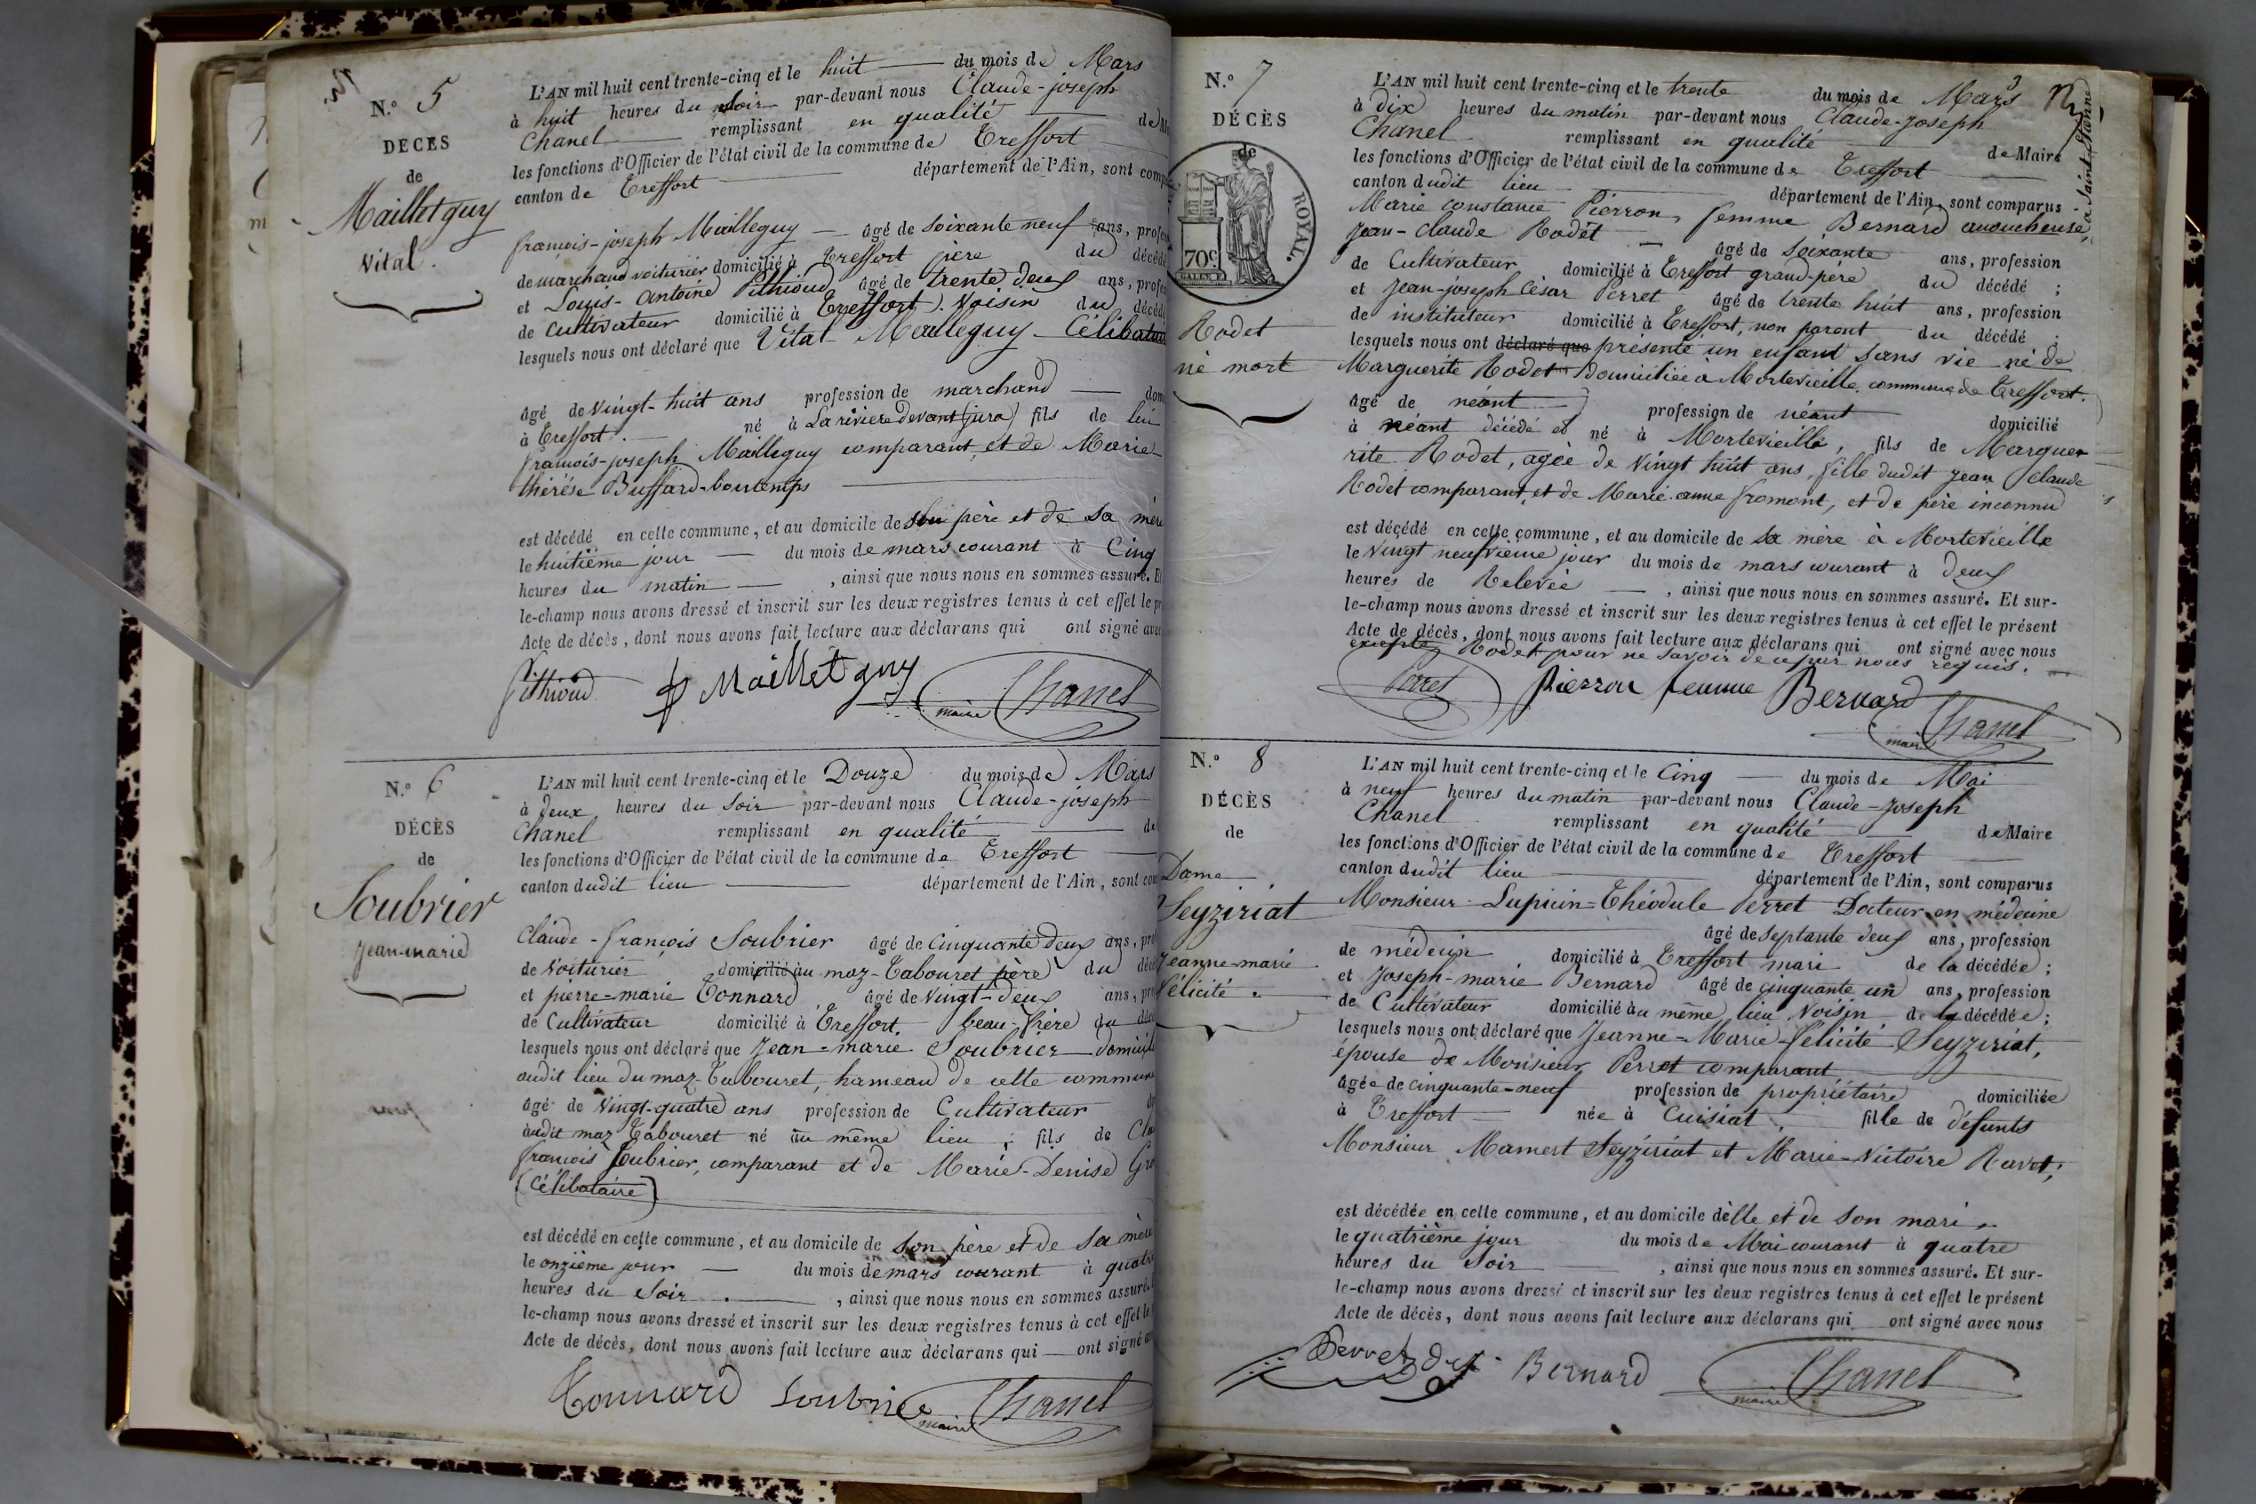 N.° 5
DÉCÈS
de
Mailletguy
Vital.
L'AN mil huit cent trente-cinq et le huit du mois de Mars
à huit heures du soir par-devant nous Claude-joseph
Chanel remplissant en qualité de
les fonctions d'Officier de l'état civil de la commune de Treffort
canton de Treffort département de l'Ain, sont comp
françois-joseph Mailleguy âgé de soixante neuf ans, profes
de marchand voiturier domicilié à Treffort père du décédé
et Louis-antoine Pithioud âgé de trente deux ans, profes
de cultivateur domicilié à Treffort voisin du décédé
lesquels nous ont déclaré que Vital Mailleguy Célibataire
âgé de vingt-huit ans profession de marchand dom
à Treffort né à La riviere devant (jura) fils de lui
françois-joseph Mailleguy comparant, et de Marie
thérése Buffard-bontemps
est décédé en cette commune, et au domicile de son père et de sa mère
le huitième jour du mois de mars courant à Cinq
heures du matin , ainsi que nous nous en sommes assuré. Et
le-champ nous avons dressé et inscrit sur les deux registres tenus à cet effet le pr
Acte de décès, dont nous avons fait lecture aux déclarans qui ont signé avec
Pithioud Maillet guy Chanel
maire
N.° 6
DÉCÈS
de
Soubrier
Jean-marie
L'AN mil huit cent trente-cinq et le Douze du mois de Mars
à Deux heures du Soir par-devant nous Claude-joseph
Chanel remplissant en qualité de
les fonctions d'Officier de l'état civil de la commune de Treffort
canton dudit lieu département de l'Ain, sont com
Claude-françois Soubrier âgé de Cinquante deux ans, pro
de Voiturier domicilié au maz-Tabouret père du décé
et pierre-marie Tonnard âgé de Vingt-deux ans, pro
de Cultivateur domicilié à Treffort. beau-frère du décé
lesquels nous ont déclaré que Jean-marie Soubrier domicilié
audit lieu du maz-Tabouret, hameau de cette commune
âgé de Vingt-quatre ans profession de Cultivateur
audit maz Tabouret né au même lieu ; fils de Cla
françois Soubrier, comparant et de Marie-Denise Gro
(Célibataire)
est décédé en cette commune, et au domicile de son père et de sa mère
le onzième jour du mois de mars courant à quatre
heures du Soir , ainsi que nous nous en sommes assuré.
le-champ nous avons dressé et inscrit sur les deux registres tenus à cet effet le
Acte de décès, dont nous avons fait lecture aux déclarans qui ont signé a
Tonnard Soubrier Chanel
maire
N.° 7
DÉCÈS
de
ROYAL.
70c.
Rodet
né mort
3
L'AN mil huit cent trente-cinq et le trente du mois de Mars
à Dix heures du matin par-devant nous Claude-joseph
Chanel remplissant en qualité de Maire
les fonctions d'Officier de l'état civil de la commune de Treffort
canton dudit lieu département de l'Ain, sont comparus
Marie constance Pierron, femme Bernard accoucheuse,
à Saint Etienne
Jean-claude Rodet âgé de soixante ans, profession
de Cultivateur domicilié à Treffort grand-père du décédé ;
et Jean-joseph César Perret âgé de trente huit ans, profession
de instituteur domicilié à Treffort, non parent du décédé ;
lesquels nous ont déclaré que présenté un enfant sans vie né de
Marguerite Rodet Domiciliée à Mortevieille, commune de Treffort.
âgé de néant profession de néant domicilié
à néant décédé et né à Mortevieille, fils de Margue-
rite Rodet, agée de vingt huit ans, fille dudit Jean Claude
Rodet comparant, et de Marie-anne fromont, et de père inconnu
est décédé en cette commune, et au domicile de sa mère à Mortevieille
le vingt neuvième jour du mois de mars courant à deux
heures de Relevée , ainsi que nous nous en sommes assuré. Et sur-
le-champ nous avons dressé et inscrit sur les deux registres tenus à cet effet le présent
Acte de décès, dont nous avons fait lecture aux déclarans qui ont signé avec nous
excepté Rodet pour ne savoir de ce par nous requis.
Perret Pierron femme Bernard
Chanel
maire
N.° 8
DÉCÈS
de
Dame
Seyziriat
Jeanne-marie
Félicité.
L'AN mil huit cent trente-cinq et le Cinq du mois de Mai
à neuf heures du matin par-devant nous Claude-Joseph
Chanel remplissant en qualité de Maire
les fonctions d'Officier de l'état civil de la commune de Treffort
canton dudit lieu département de l'Ain, sont comparus
Monsieur Lupicin-Théodule Perret Docteur en médecine
âgé de septante deux ans, profession
de médecin domicilié à Treffort mari de la décédée ;
et Joseph-marie Bernard âgé de cinquante un ans, profession
de Cultivateur domicilié au même lieu, Voisin de la décédée ;
lesquels nous ont déclaré que Jeanne-Marie-félicité Seyziriat,
épouse de Monsieur Perret comparant
âgée de cinquante-neuf profession de propriétaire domiciliée
à Treffort née à Cuisiat fille de défunts
Monsieur Mamert Seyziriat et Marie-Victoire Ravet,
est décédée en cette commune, et au domicile d'elle et de son mari
le quatrième jour du mois de Mai courant à quatre
heures du Soir , ainsi que nous nous en sommes assuré. Et sur-
le-champ nous avons dressé et inscrit sur les deux registres tenus à cet effet le présent
Acte de décès, dont nous avons fait lecture aux déclarans qui ont signé avec nous
Perret Bernard Chanel
maire